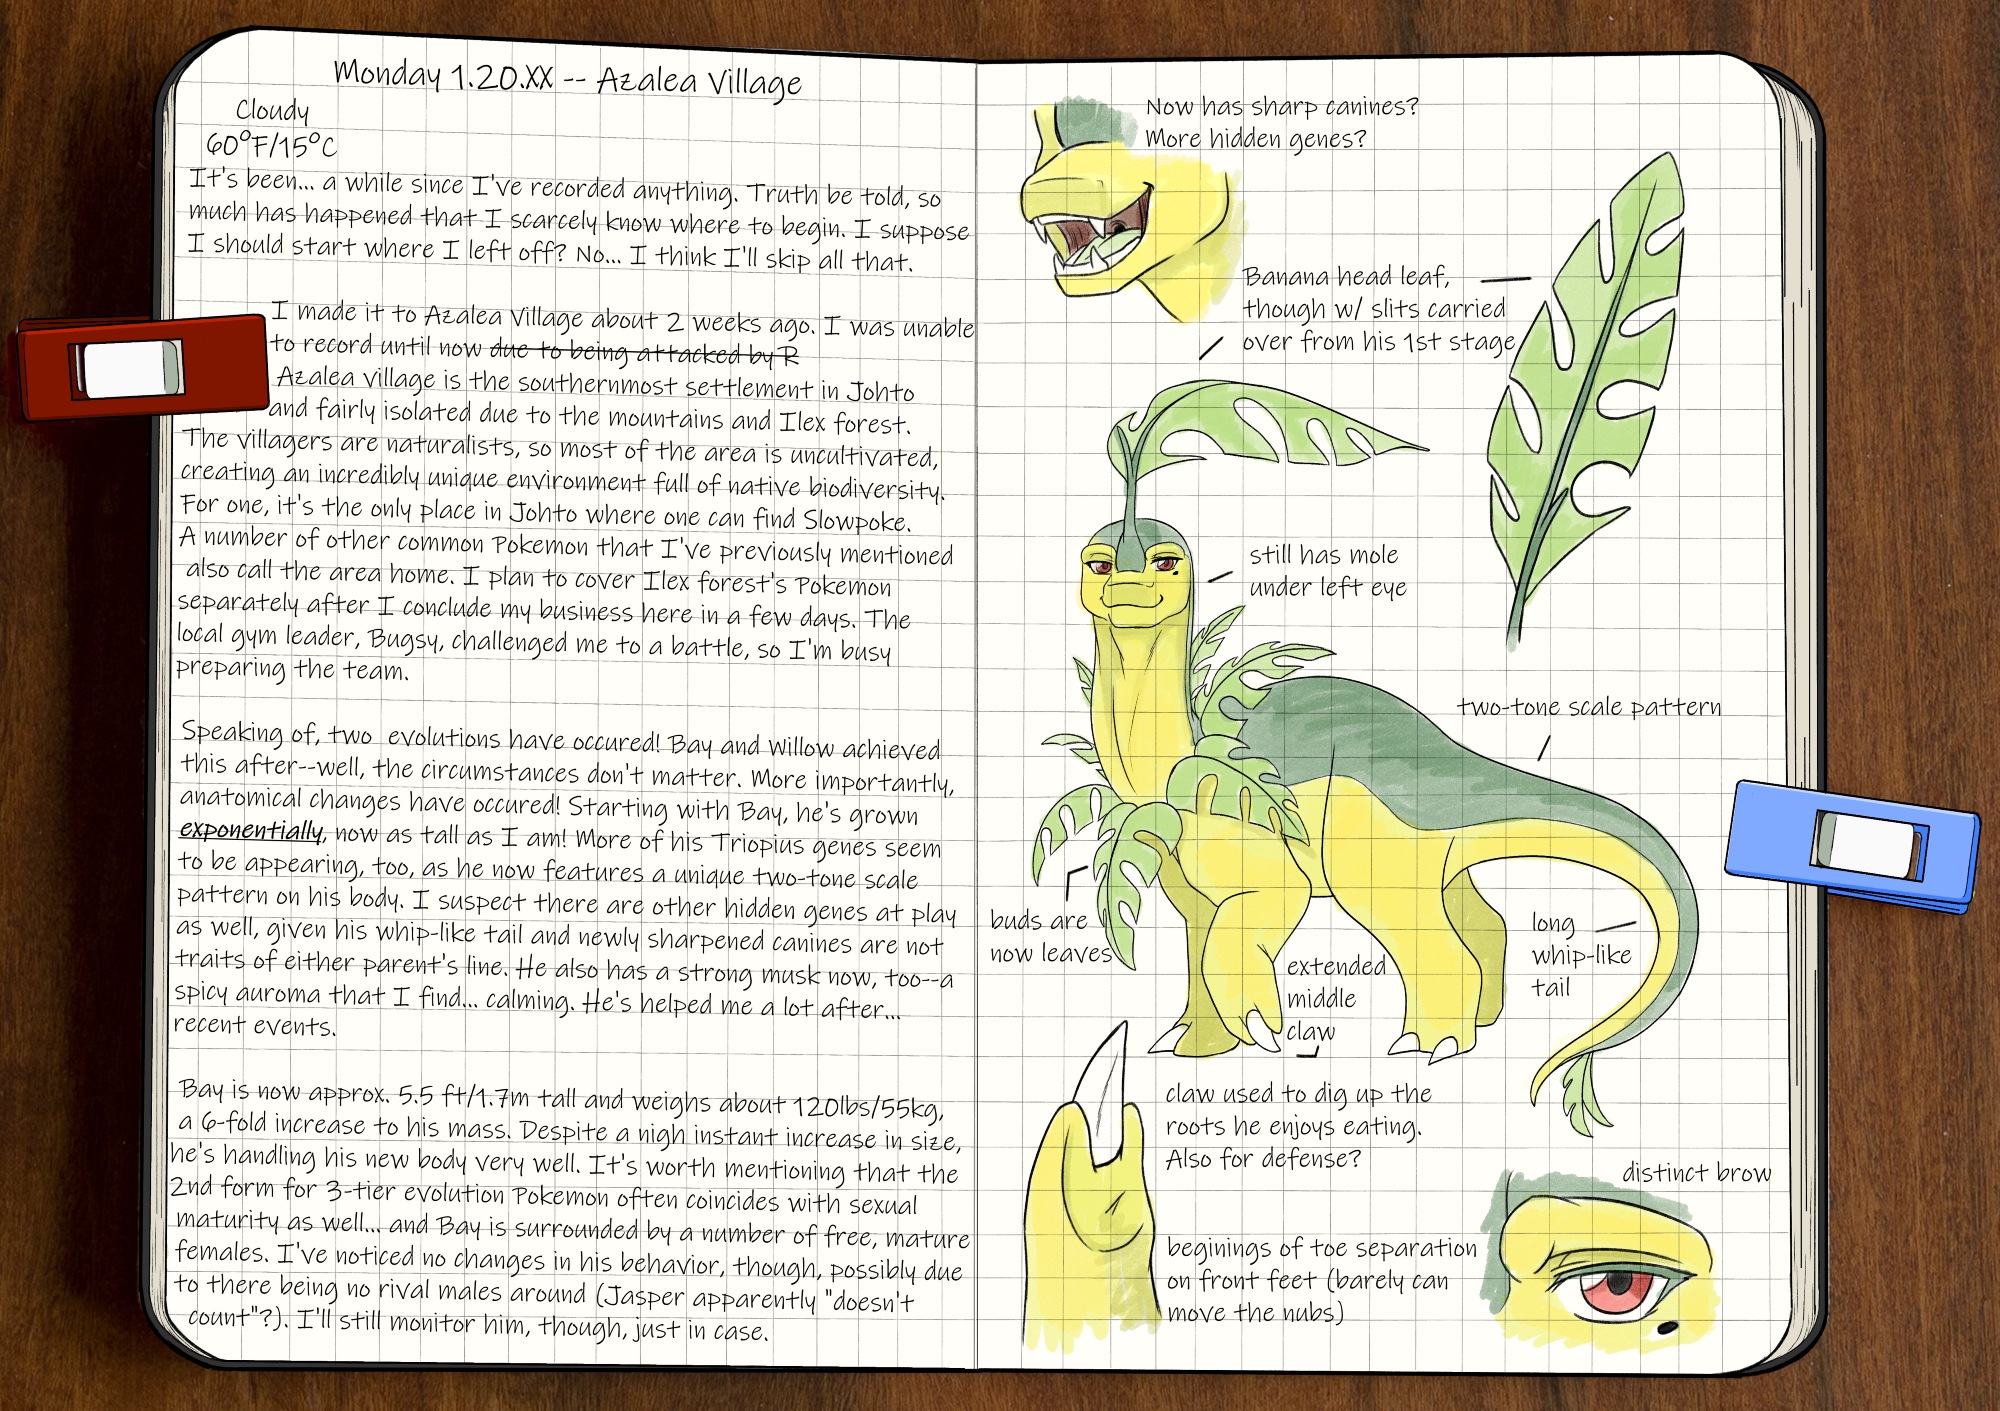 Monday 1.20.XX -- Azalea Village
Cloudy
60°F/15°C
It's been... a while since I've recorded anything. Truth be told, so
much has happened that I scarcely know where to begin. I suppose
I should start where I left off? No... I think I'll skip all that.
I made it to Azalea Village about 2 weeks ago. I was unable
to record until now due to being attacked by R
Azalea village is the southernmost settlement in Johto
and fairly isolated due to the mountains and Ilex forest.
The villagers are naturalists, so most of the area is uncultivated,
creating an incredibly unique environment full of native biodiversity.
For one, it's the only place in Johto where one can find Slowpoke.
A number of other common Pokemon that I've previously mentioned
also call the area home. I plan to cover Ilex forest's Pokemon
separately after I conclude my business here in a few days. The
local gym leader, Bugsy, challenged me to a battle, so I'm busy
preparing the team.
Speaking of, two evolutions have occured! Bay and Willow achieved
this after--well, the circumstances don't matter. More importantly,
anatomical changes have occured! Starting with Bay, he's grown
exponentially, now as tall as I am! More of his Triopius genes seem
to be appearing, too, as he now features a unique two-tone scale
pattern on his body. I suspect there are other hidden genes at play
as well, given his whip-like tail and newly sharpened canines are not
traits of either parent's line. He also has a strong musk now, too--a
spicy auroma that I find... calming. He's helped me a lot after...
recent events.
Bay is now approx. 5.5 ft/1.7m tall and weighs about 120lbs/55kg,
a 6-fold increase to his mass. Despite a nigh instant increase in size,
he's handling his new body very well. It's worth mentioning that the
2nd form for 3-tier evolution Pokemon often coincides with sexual
maturity as well... and Bay is surrounded by a number of free, mature
females. I've noticed no changes in his behavior, though, possibly due
to there being no rival males around (Jasper apparently "doesn't
count"?). I'll still monitor him, though, just in case.
Now has sharp canines?
More hidden genes?
Banana head leaf,
though w/ slits carried
over from his 1st stage
still has mole
under left eye
two-tone scale pattern
buds are
now leaves
long
whip-like
tail
extended
middle
claw
claw used to dig up the
roots he enjoys eating.
Also for defense?
distinct brow
beginings of toe separation
on front feet (barely can
move the nubs)